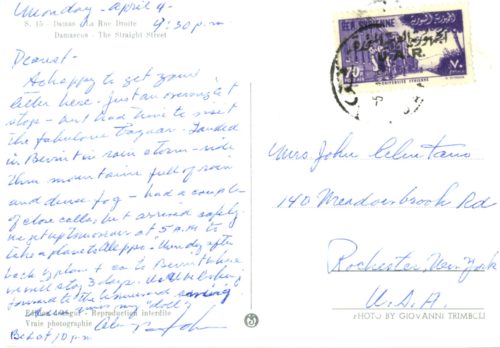 Monday - April 4 -
4:30 p.m
S. 15 - Damas La Rue Droite
Damascus - The Straight Street
Dearest -
So happy to get your
letter here. Just an overnight
stop - but had time to visit
the fabulous bazaar. Landed
in Beirut in rain storm - ride
thru mountains full of rain
and dense fog - had a couple
of close calls, but arrived safely.
We get up tomorrow at 5 a.m. to
take a plane to Aleppo - Thursday after
back by plane & go to Beirut where
we will stay 3 days.
forward to the
miss my "doll"
Editions - Reproduction interdite
Vraie photographie
Bed at 10 p.m
REP. SYRIENNE
U.A.R.
70
٧٠
Mrs. John
140 Meadowbrook Rd
Rochester, New York
U.S.A.
PHOTO BY GIOVANNI TRIMBOLI